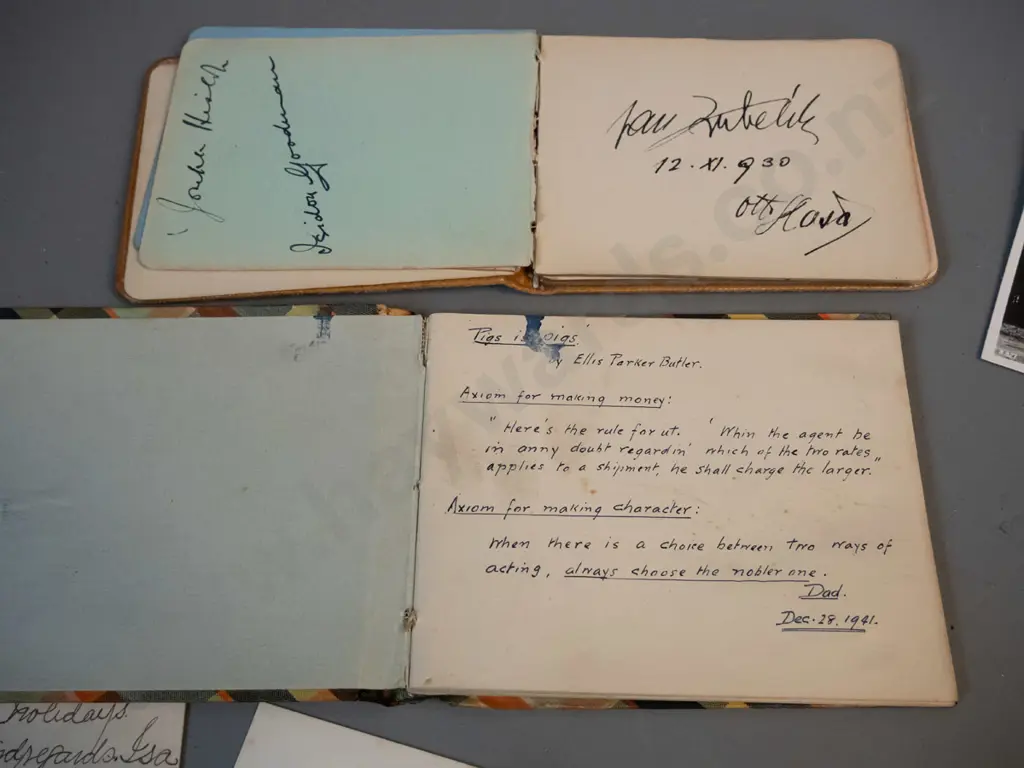 Isidor Goodman
Jan Kubelík
12 · XI. 930
Pigs is pigs'
by Ellis Parker Butler.
Axiom for making money:
"Here's the rule for ut. 'Whin the agent be
in anny doubt regardin' which of the two rates
applies to a shipment, he shall charge the larger."
Axiom for making character:
When there is a choice between two ways of
acting, always choose the nobler one.
Dad.
Dec. 28. 1941.
holidays.
regards. Isa